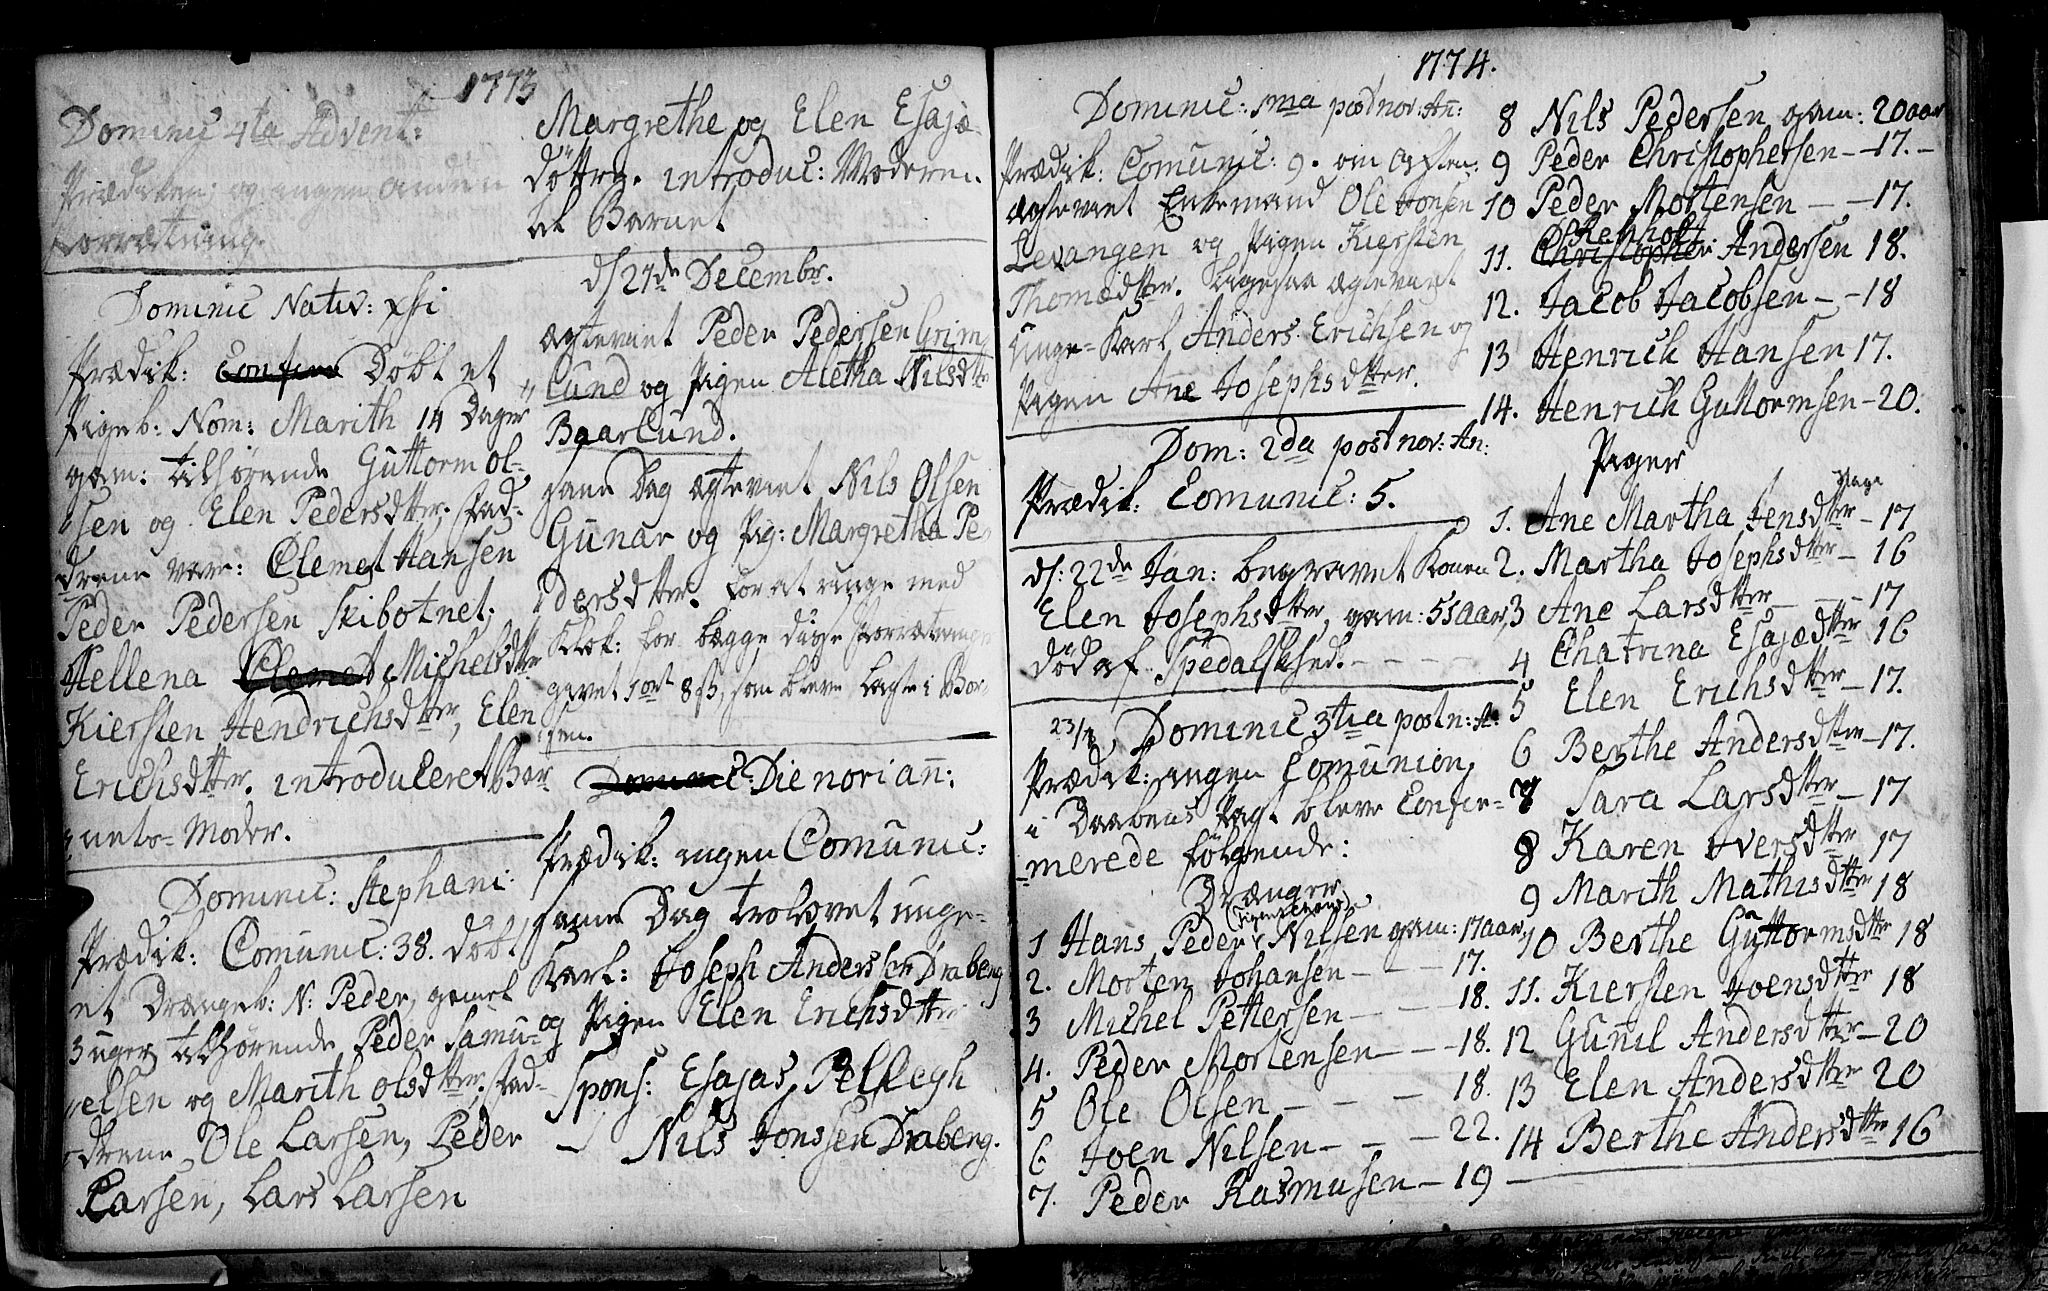 1773
Dominic 4ta Advent:
Prædiken; og ingen anden
Forrætning.
Dominic Nativ: xsti
Prædik: Confirm Döbt et
Pigeb: Nom: Marith 14 Dager
gam: tilhørende Guttorm Ol-
sen og Elen Pedersdtter. Fad-
drene vare: Clemet Hansen
Peder Pedersen Skibotnet;
Hellena Clemet Michelsdtter
Kiersten Hendrichsdtter, Elen
Erichsdtter. introduceret Bar
nets Moder.
Dominic: Stephani:
Prædik: Comunic: 38. döbt
et Drængeb: N: Peder, gamel
3 uger tilhørende Peder Samu-
elsen og Marith Olsdtter; Fad-
drene Ole Larsen, Peder
Larsen, Lars Larsen
Margrethe og Elen Esajæ-
döttre. introduc: Moderen.
til Barnet
d/ 27de Decembr.
Ægteviet Peder Pedersen Grim
lund og Pigen Aletha Nilsdtter
Baarlund.
Same Dag ægteviet Nils Olsen
Gunar og Pig: Margretha Pe
dersdtter. for at ringe med
Klok: for begge disse forrætninger
givet 1 ort 8 ß, som bleve lagte i Bør-
sen.
Dominic Die novi añ:
Prædik: ingen Comunic:
same Dag trolovet unge-
Karl: Joseph Andersen Draberg
og Pigen Elen Erichsdtter
Spons: Esajas Pellegh
Nils Jonssen Draberg.
1774.
Dominic: 1ma post nov: Añ:
Prædik: Comunic: 9. om Aften
ægteviet Enkemand Ole Jonsen
Levangen og Pigen Kiersten
Thomædtter. Ligesaa ægteviet
Unge-Karl Anders Erichsen og
Pigen Ane Josephsdtter.
Dom: 2da post nov: An:
Prædik: Comunic: 5.
d/: 22de Jan: begravet Konen
Elen Josephsdtter, gam: 55 aar,
död af Spedalskhed.
23/1 Dominic 3tia post n: A:
Prædik: ingen Comunion,
i Daabens Pagt bleve Confir-
merede følgende:
Drænger
1 Hans Peder Nilsen gam: 17 aar,
2. Morten Johansen - - - 17.
3 Michel Pettersen - - - 18.
4. Peder Mortensen - - - 18.
5 Ole Olsen - - - 18.
6 Joen Nilsen - - - 22.
7. Peder Rasmusen - 19
8 Nils Pedersen gam: 20 aar
9 Peder Christophersen - 17. -
10 Peder Mortensen - - 17.
11. Christopher Andersen 18.
12. Jacob Jacobsen - - 18
13 Henrich Hansen 17.
14. Henrich Guttormsen - 20.
Piger
1. Ane Martha Jensdtter - 17
2. Martha Josephsdtter - 16
3 Ane Larsdtter - - - 17
4 Chatrina Esajædtter 16
5 Elen Erichsdtter - 17.
6 Berthe Andersdtter - 17.
7 Sara Larsdtter - 17
8 Karen Iversdtter 17
9 Marith Mathisdtter 18
10 Berthe Guttormsdtter 18
11. Kiersten Joensdtter 18
12 Gunil Andersdtter - 20
13 Elen Andersdtter 20
14 Berthe Andersdtter 16